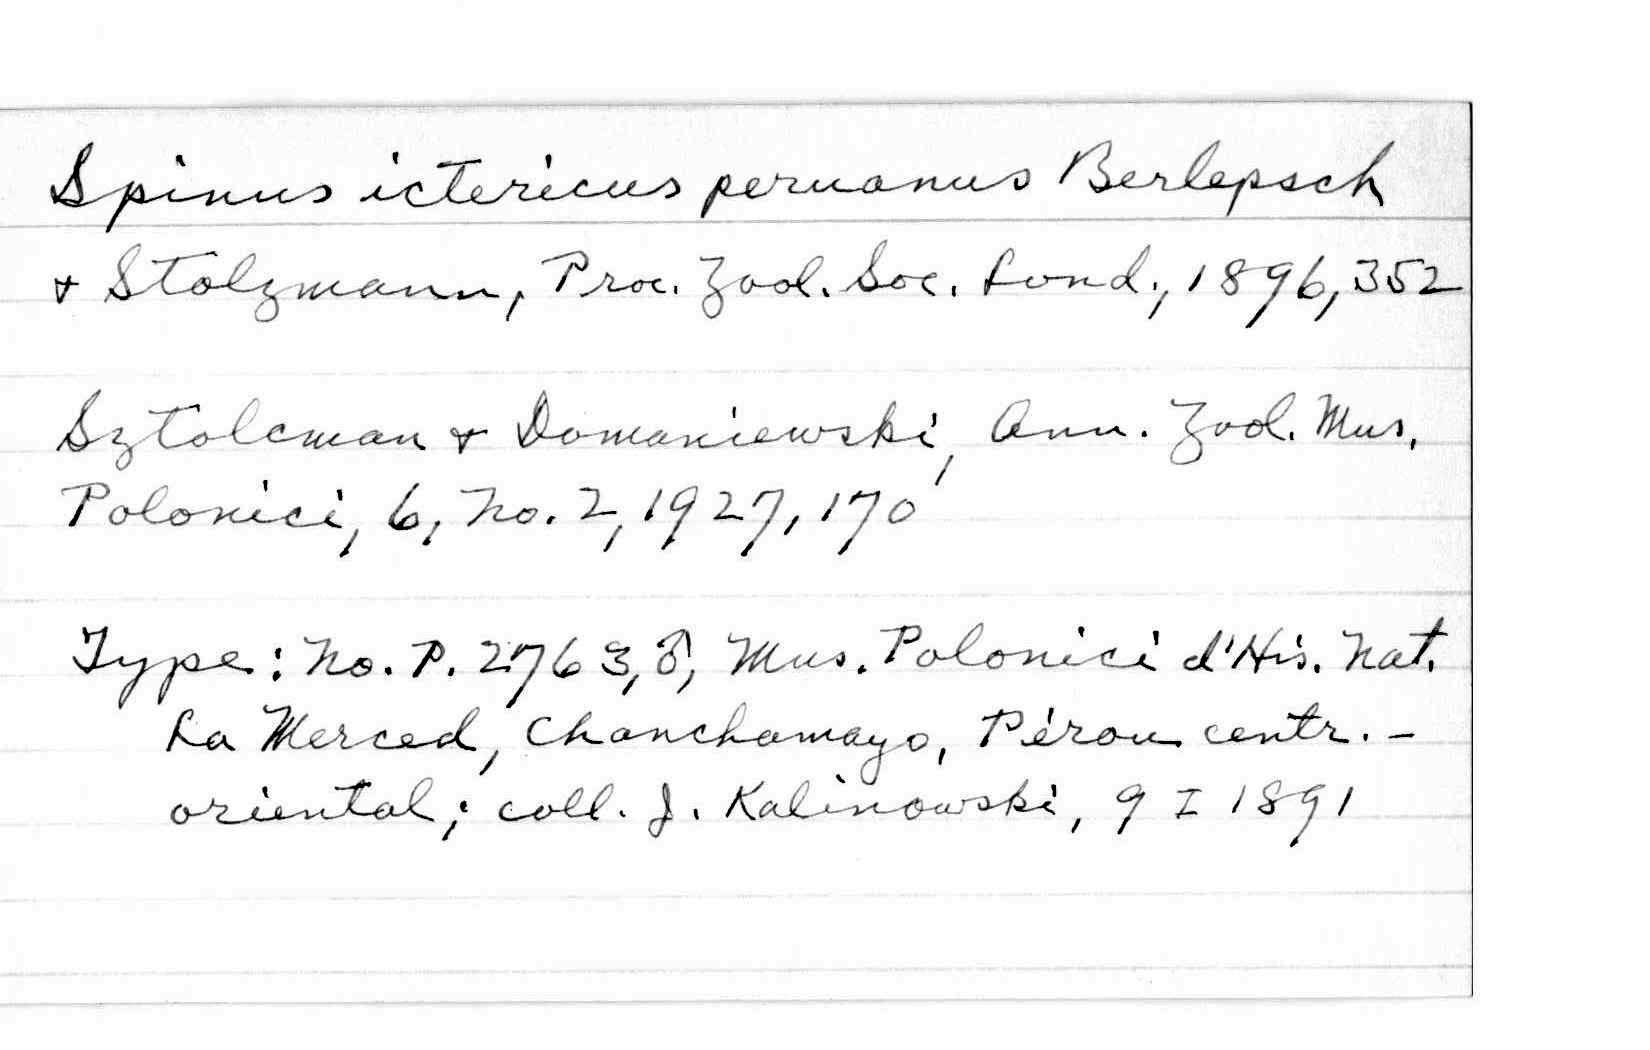 Spinus ictericus peruanus Berlepsch
& Stolzmann, Proc. Zool. Soc. Lond., 1896, 352
Sztolcman & Domaniewski, Ann. Zool. Mus.
Polonici, 6, No. 2, 1927, 170
Type: No. P. 2763, ♂, Mus. Polonici d'His. Nat.
La Merced, Chanchamayo, Pérou centr.-
oriental; coll. J. Kalinowski, 9 I 1891